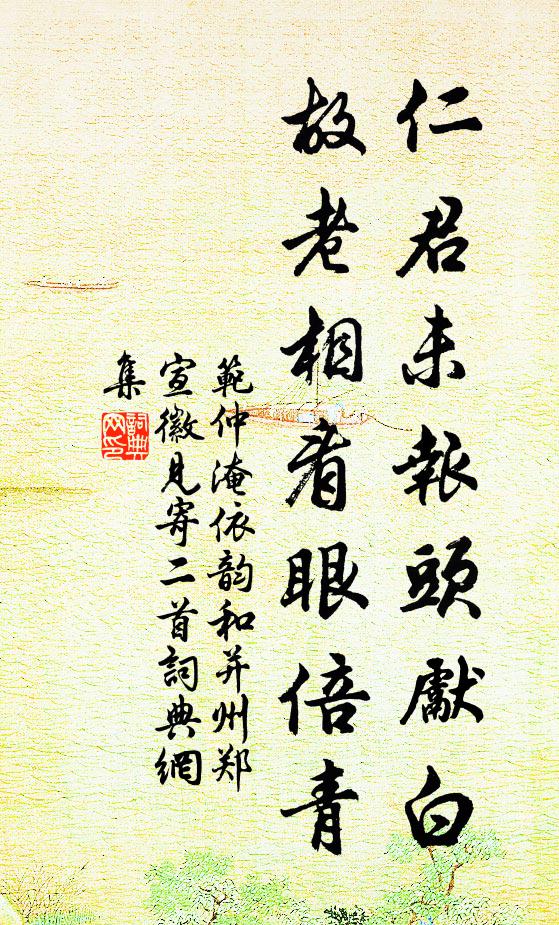 仁君未報頭獻白
故老相看眼倍青
範仲淹依韵和并州郑
宣徽見寄二首詞典網
集
詞典
网印